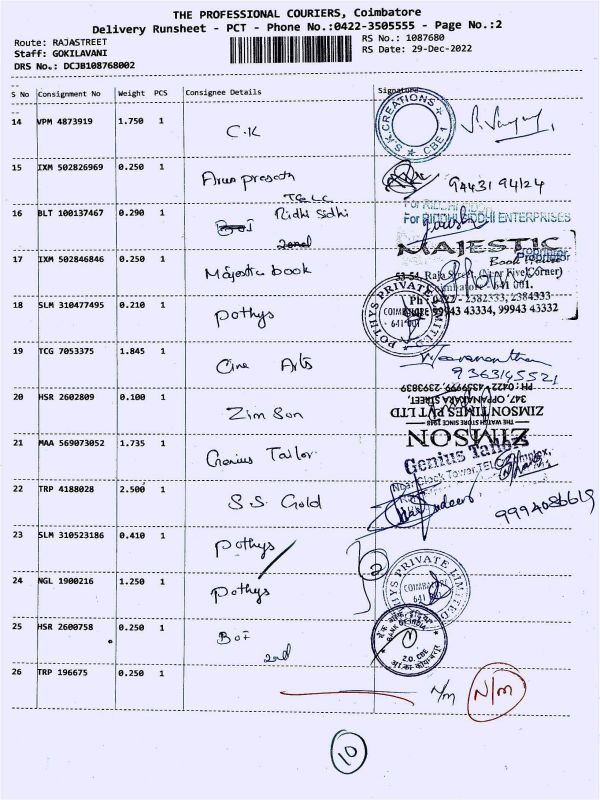 THE PROFESSIONAL COURIERS, Coimbatore
Delivery Runsheet - PCT - Phone No.:0422-3505555 - Page No.:2
Route: RAJASTREET
RS No.: 1087680
Staff: GOKILAVANI
RS Date: 29-Dec-2022
DRS No.: DCJB108768002
S No Consignment No Weight PCS Consignee Details Signature
14 VPM 4873919 1.750 1 C.K
S.K. CREATIONS CBE 1
15 IXM 502826969 0.250 1 Arun prasath
94431 94124
16 BLT 100137467 0.290 1 Ridhi Sidhi
2nd
For RIDDHI SIDDHI ENTERPRISES
Proprietor
17 IXM 502846846 0.250 1 Majestic book
MAJESTIC
Book House
53-54, Raja Street, (Near Five Corner)
Coimbatore - 641 001.
Ph : 0422 - 2382333, 2384333
99943 43334, 99943 43332
18 SLM 310477495 0.210 1 Pothys
POTHYS PRIVATE LIMITED
COIMBATORE
641 001
19 TCG 7053375 1.845 1 Cine Arts
9363145521
20 HSR 2602809 0.100 1 Zim Son
ZIMSON
THE WATCH STORE SINCE 1948
ZIMSON TIMES PVT LTD
347, OPPANAKARA STREET,
PH : 0422 - 4359999, 2393839
21 MAA 569073052 1.735 1 Genius Tailor
Genius Tailors
Near Clock Tower, TELC Complex,
22 TRP 4188028 2.500 1 S.S. Gold
9994086619
23 SLM 310523186 0.410 1 Pothys
2
24 NGL 1900216 1.250 1 Pothys
POTHYS PRIVATE LIMITED
COIMBATORE
641 001
25 HSR 2600758 0.250 1 BOI
2nd
BANK OF INDIA
Z.O. CBE
26 TRP 196675 0.250 1
N/m N/m
10